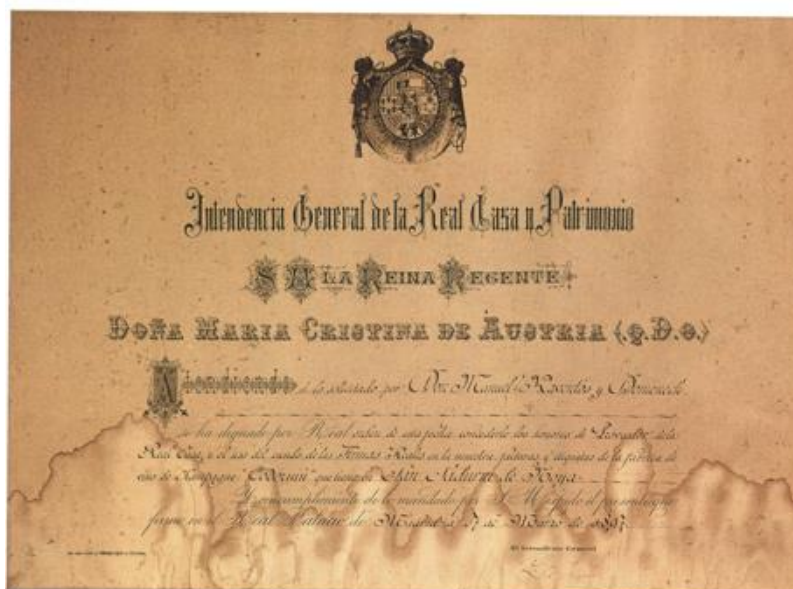 Intendencia General de la Real Casa y Patrimonio
S M LA REINA REGENTE
DOÑA MARIA CRISTINA DE AUSTRIA (Q.D.G.)
Atendiendo á lo solicitado por Don Manuel Raventós y Domenech
se ha dignado por Real orden de esta fecha concederle los honores de Proveedor de la
Real Casa, y el uso del escudo de las Armas Reales en la muestra, facturas y etiquetas de la fabrica de
vino de Champagne "Codorniu" que tiene en San Sadurní de Noya
Y en cumplimiento de lo mandado por S. M. expido el presente que
firmo en el Real Palacio de Madrid á 17 de Marzo de 1897
El Intendente General